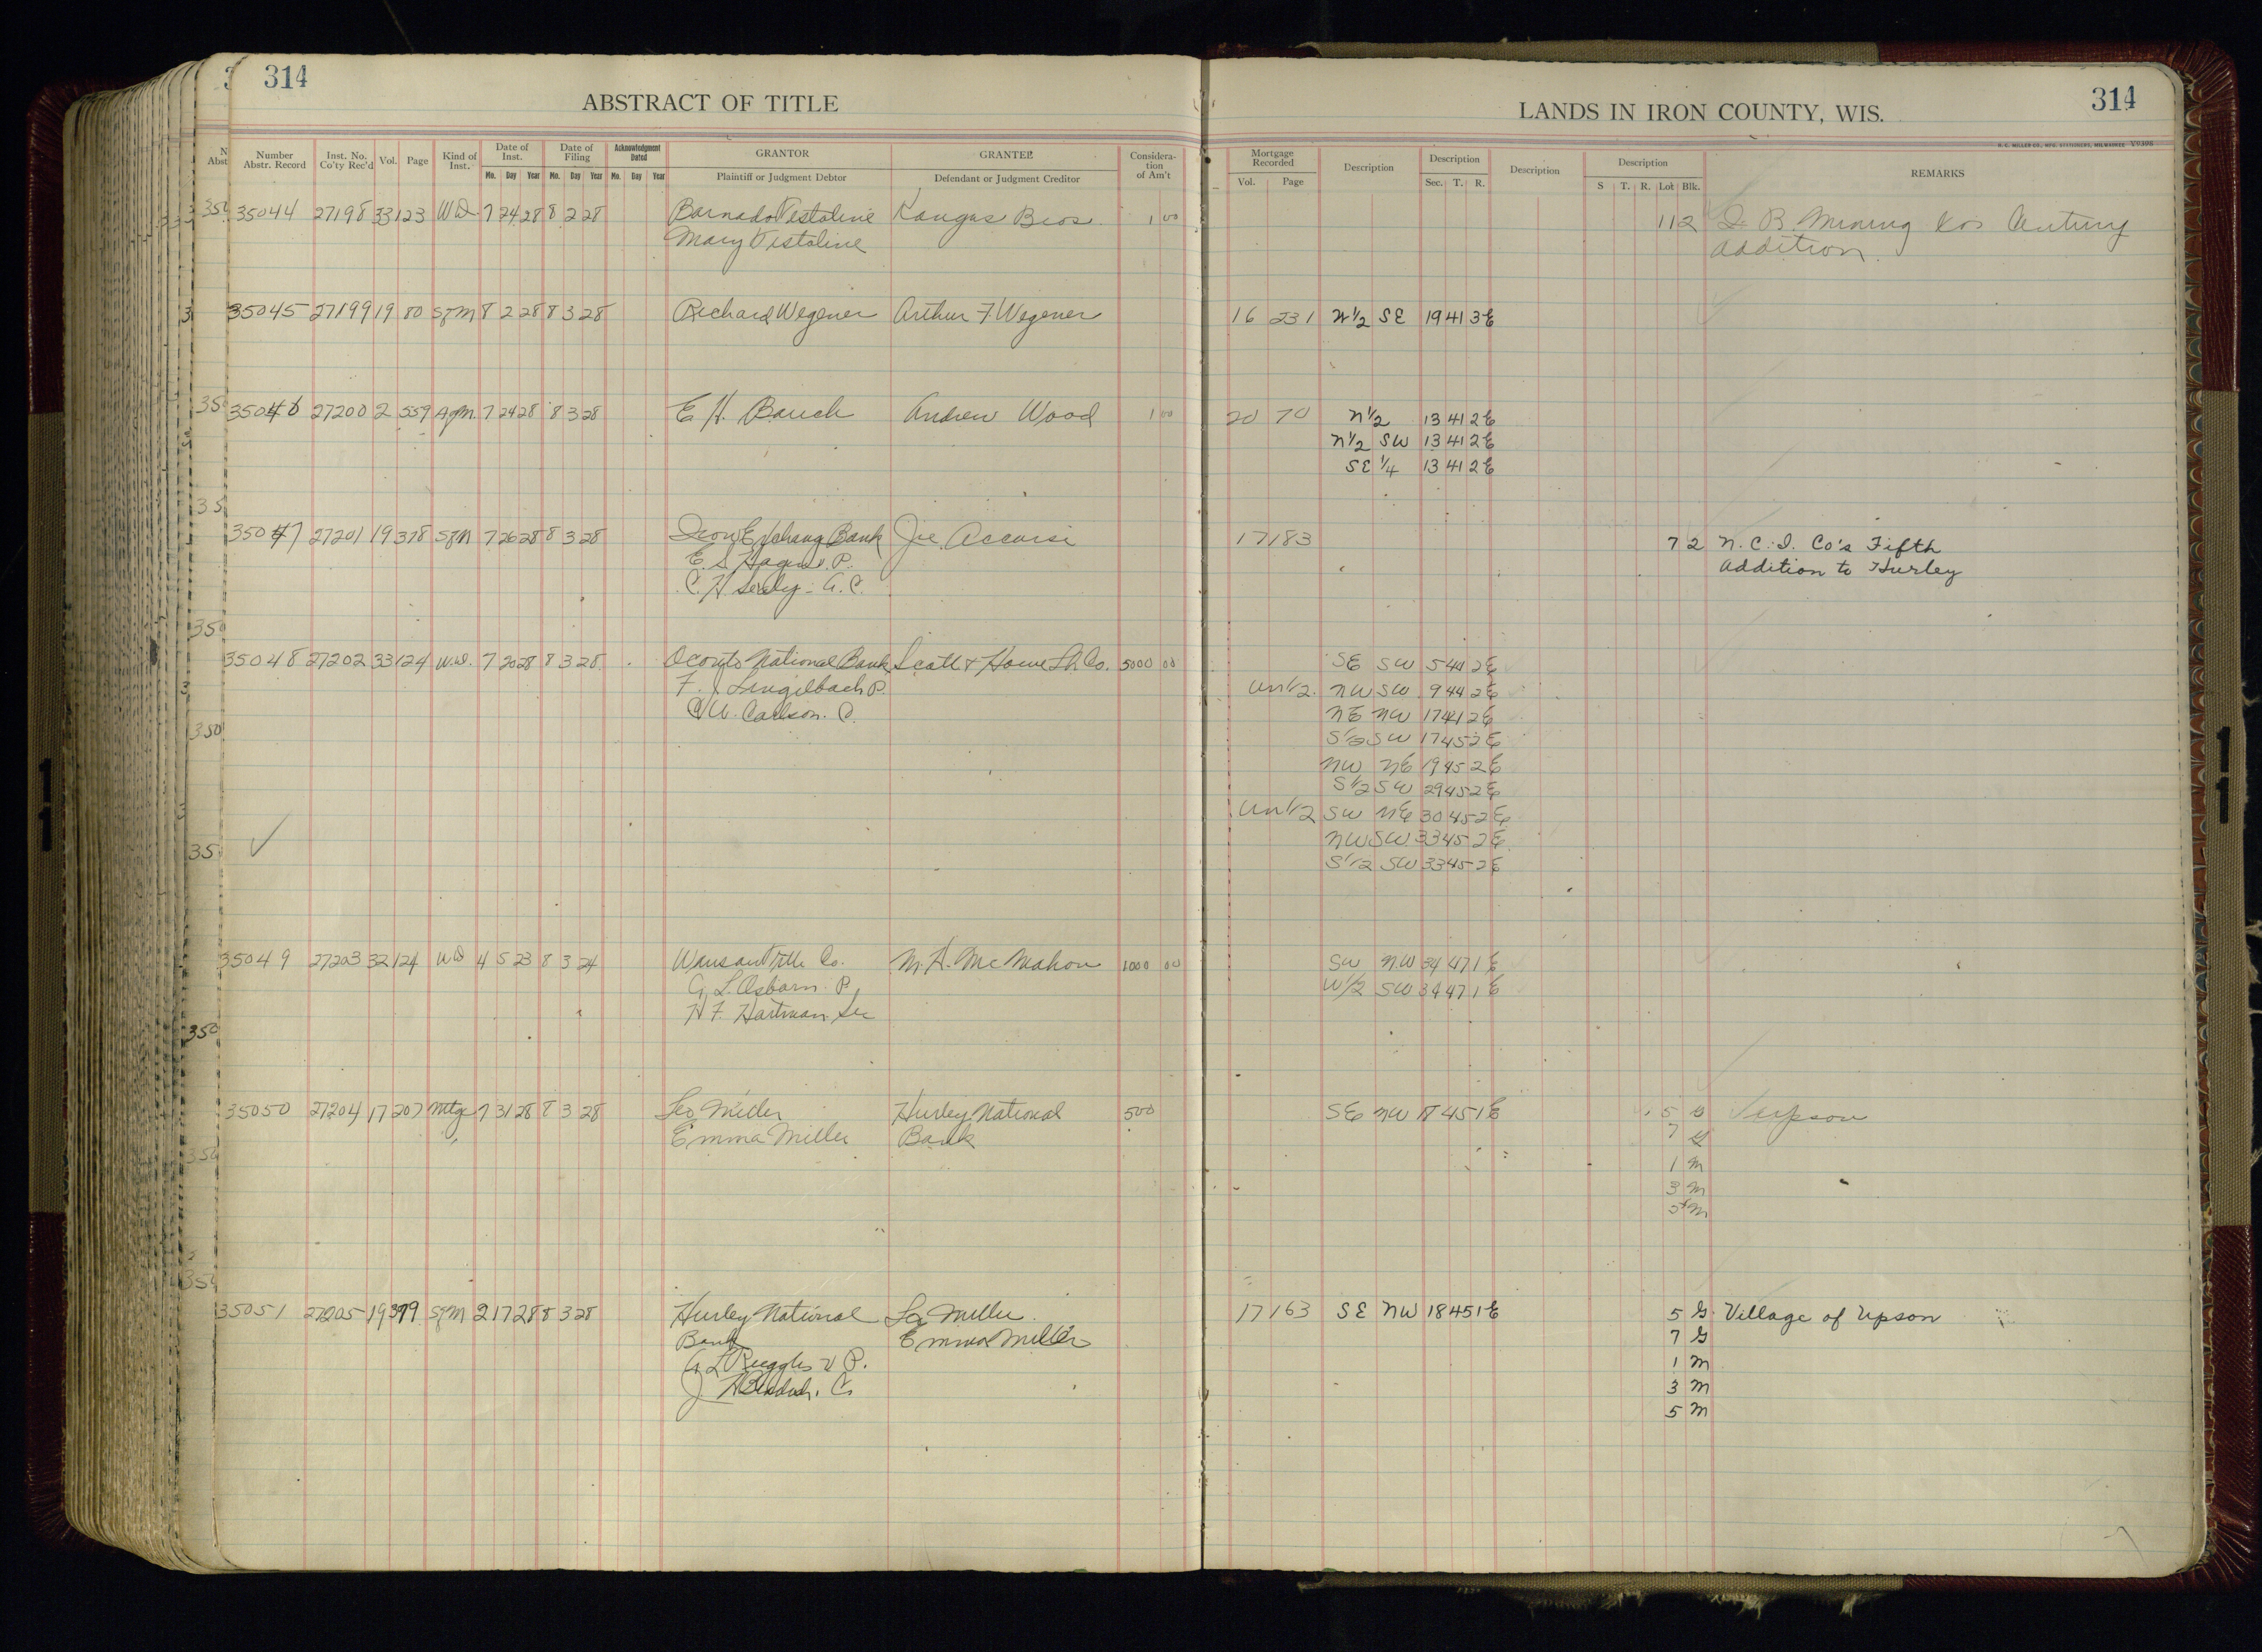 314
ABSTRACT OF TITLE
Number Abstr. Record Inst. No. Co'ty Rec'd Vol. Page Kind of Inst. Date of Inst. Mo. Day Year Date of Filing Mo. Day Year Acknowledgment Dated Mo. Day Year GRANTOR Plaintiff or Judgment Debtor GRANTEE Defendant or Judgment Creditor Considera-tion of Am't
35044 27198 33 123 WD 7 24 28 8 2 28 Barnado Testaline Kangas Bros. 1 00
Mary Testaline
35045 27199 19 80 Sfm 8 2 28 8 3 28 Richard Wegener Arthur F. Wegener
35046 27200 2 559 Agm 7 24 28 8 3 28 E. H. Bauch Andrew Wood 1 00
35047 27201 19 378 Sfm 7 26 28 8 3 28 Iron Exchang Bank Joe Accorsi
E. S. V. P.
C. H. A. C.
35048 27202 33 124 W.D. 7 20 28 8 3 28 Oconto National Bank Scott & Howe Lb. Co. 5000 00
F. J. Lingelbach P.
C W. Carlson. C.
35049 27203 32 124 WD 4 5 23 8 3 24 Title Co. M. H. McMahon 1000 00
G. L. Osborn. P.
H. F. Hartman. Sec
35050 27204 17 207 Mtg 7 31 28 8 3 28 Leo Miller Hurley National 500
Emma Miller Bank
35051 27205 19 379 Sfm 2 17 28 8 3 28 Hurley National Leo Miller
Bank Emma Miller
G L Ruggles V P.
J C.
LANDS IN IRON COUNTY, WIS.
314
H. C. MILLER CO., MFG. STATIONERS, MILWAUKEE V0398
Mortgage Recorded Vol. Page Description Description Sec. T. R. Description Description S T. R. Lot Blk. REMARKS
1 12 D. B. Mining Cos
addition
16 231 N½ SE 19 41 3E
20 70 N½ 13 41 2E
N½ SW 13 41 2E
SE ¼ 13 41 2E
17 183 7 2 N. C. I. Co's Fifth
Addition to Hurley
SE SW 5 44 2E
Un½ NW SW 9 44 2E
NE NW 17 41 2E
S½ SW 17 45 2E
NW NE 19 45 2E
S½ SW 29 45 2E
Un½ SW NE 30 45 2E
NW SW 33 45 2E
S½ SW 33 45 2E
SW NW 34 47 1E
W½ SW 34 47 1E
SE NW 18 45 1E 5 G Upson
7 G
1 M
3 M
5 M
17 163 SE NW 18 45 1E 5 G Village of Upson
7 G
1 M
3 M
5 M